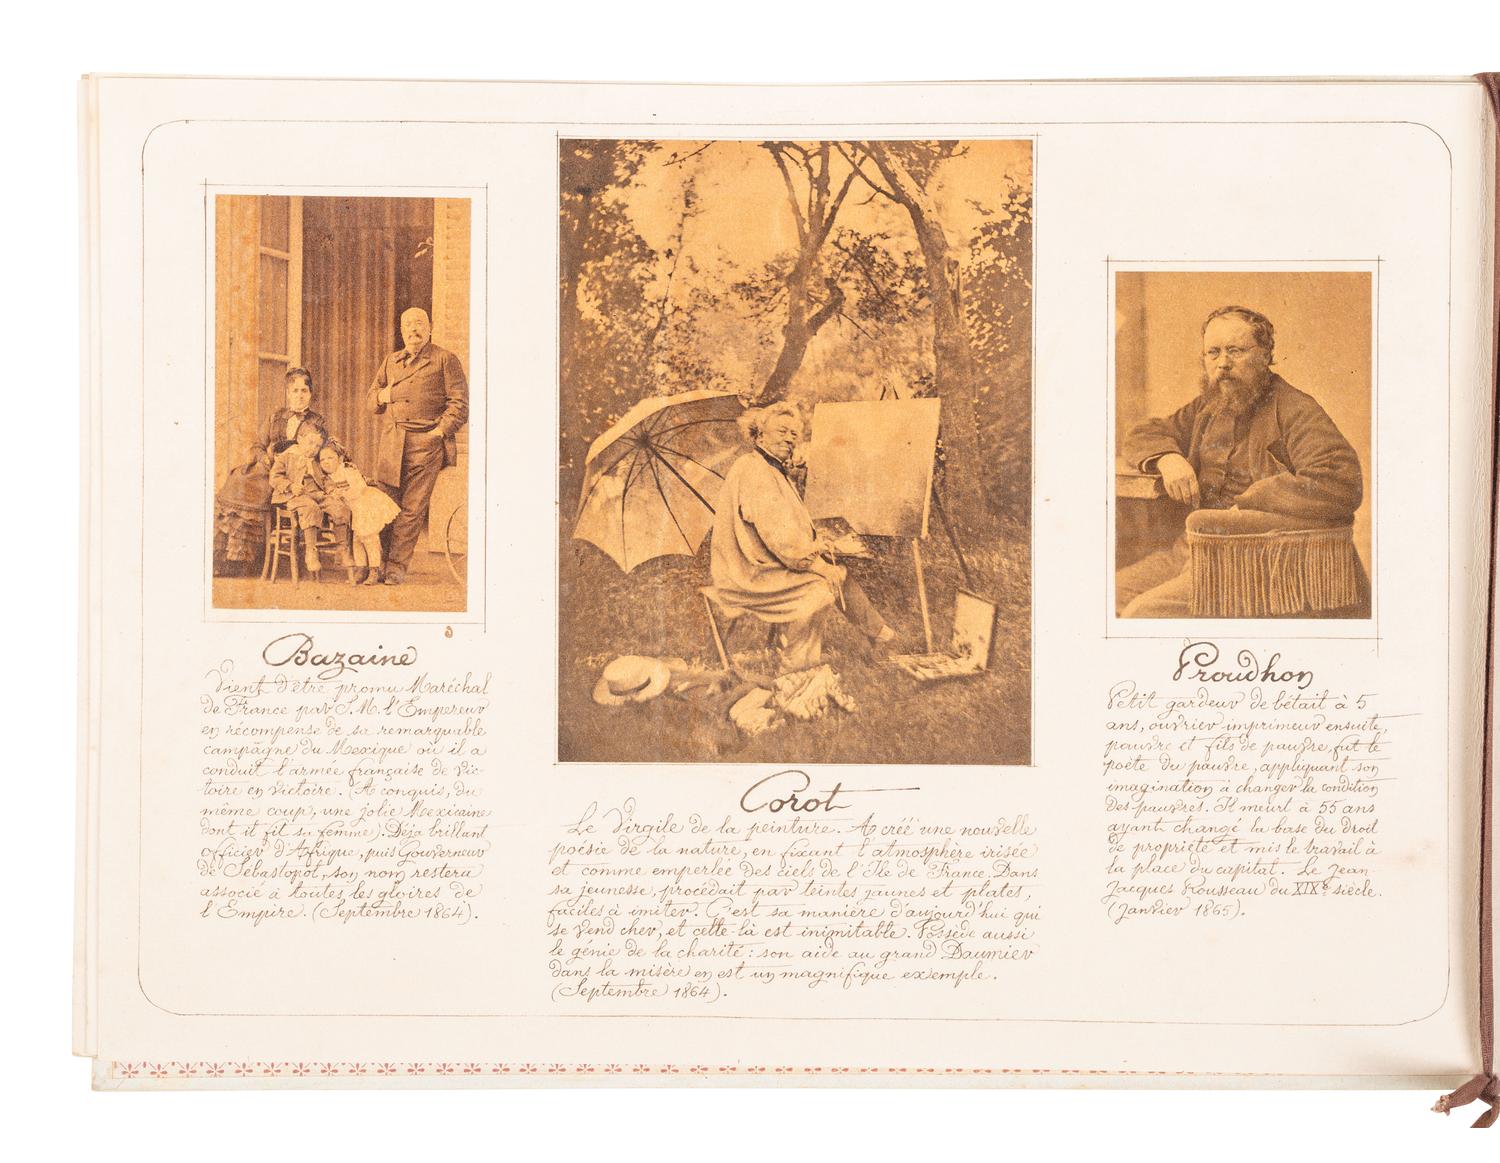 Bazaine
Vient d'être promu Maréchal
de France par S.M. l'Empereur
en récompense de sa remarquable
campagne du Mexique où il a
conduit l'armée française de vic-
toire en victoire. (A conquis, du
même coup, une jolie Mexicaine
dont il fit sa femme). Déjà brillant
officier d'Afrique, puis Gouverneur
de Sébastopol, son nom restera
associé à toutes les gloires de
l'Empire. (Septembre 1864).
Corot
Le Virgile de la peinture. A créé une nouvelle
poésie de la nature, en fixant l'atmosphère irisée
et comme emperlée des ciels de l'Ile de France. Dans
sa jeunesse, procédait par teintes jaunes et plates,
faciles à imiter. C'est sa manière d'aujourd'hui qui
se vend cher, et celle-là est inimitable. Possède aussi
le génie de la charité : son aide au grand Daumier
dans la misère en est un magnifique exemple.
(Septembre 1864).
Proudhon
Petit gardeur de bétail à 5
ans, ouvrier imprimeur ensuite,
pauvre et fils de pauvre, fut le
poète du pauvre, appliquant son
imagination à changer la condition
des pauvres. Il meurt à 55 ans
ayant changé la base du droit
de propriété et mis le travail à
la place du capital. Le Jean-
Jacques Rousseau du XIXe siècle.
(Janvier 1865).